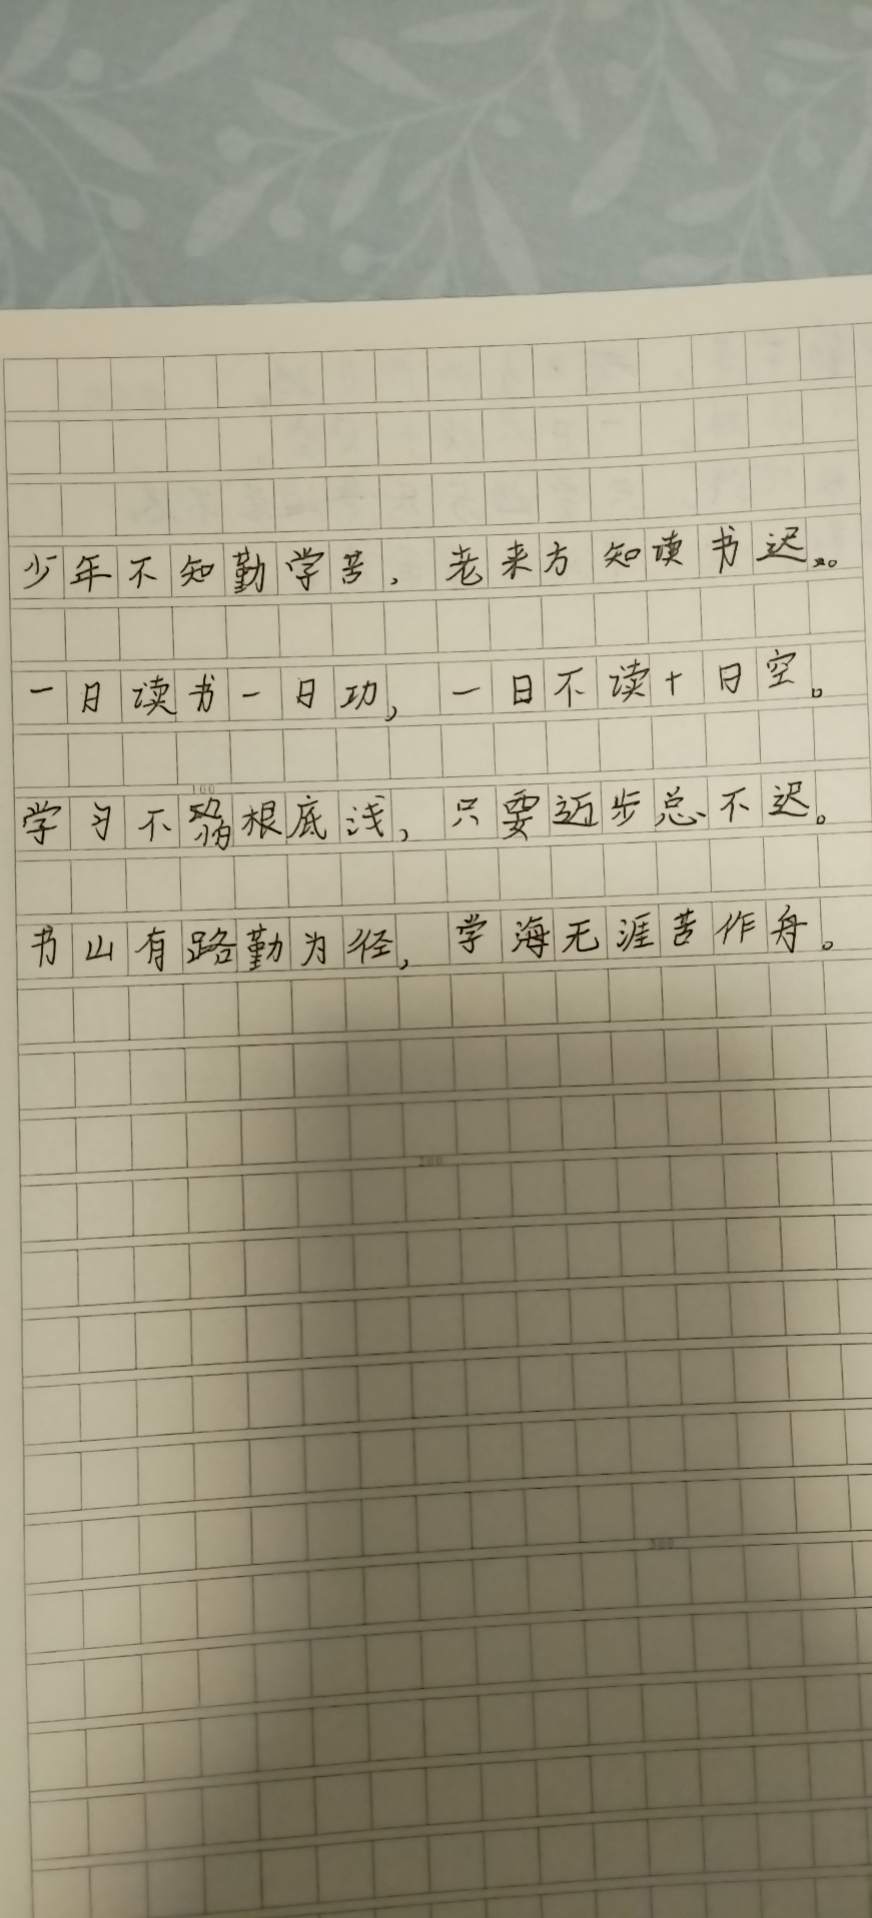 少年不知勤学苦，老来方知读书迟。
一日读书一日功，一日不读十日空。
100
学习不怕根底浅，只要迈步总不迟。
书山有路勤为径，学海无涯苦作舟。
200
300